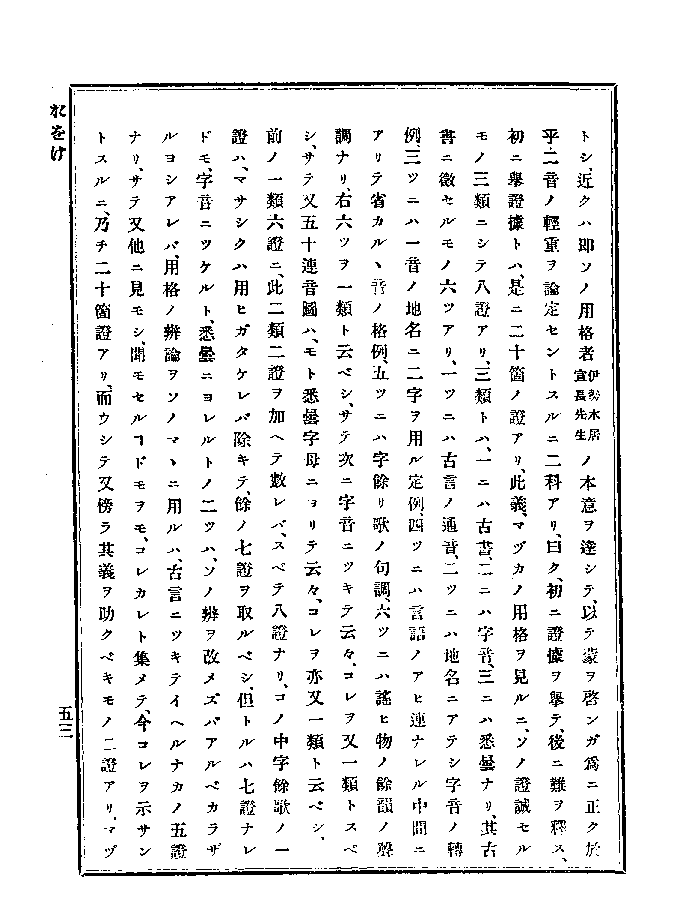 トシ、近クハ即ソノ用格者伊勢本居宣長先生ノ本意ヲ達シテ、以テ蒙ヲ啓ンガ爲ニ正ク於
乎二音ノ輕重ヲ論定セントスルニ二科アリ、曰ク、初ニ證據ヲ擧テ、後ニ難ヲ釋ス、
初ニ擧證據トハ、是ニ二十箇ノ證アリ、此義、マヅカノ用格ヲ見ルニ、ソノ證誠セル
モノ三類ニシテ八證アリ、三類トハ、一ニハ古書、二ニハ字音、三ニハ悉曇ナリ、其古
書ニ徵セルモノ六ツアリ、一ツニハ古言ノ通音、二ツニハ地名ニアテシ字音ノ轉
例、三ツニハ一音ノ地名ニ二字ヲ用ル定例、四ツニハ言語ノアヒ連ナレル中間ニ
アリテ省カルヽ音ノ格例、五ツニハ字餘リ歌ノ句調、六ツニハ謠ヒ物ノ餘韻ノ聲
調ナリ、右六ツヲ一類ト云ベシ、サテ次ニ字音ニツキテ云々、コレヲ又一類トスベ
シ、サテ又五十連音圖ハ、モト悉曇字母ニヨリテ云々、コレヲ亦又一類ト云ベシ、
前ノ一類六證ニ、此二類二證ヲ加ヘテ數レバ、スベテ八證ナリ、コノ中字餘歌ノ一
證ハ、マサシクハ用ヒガタケレバ除キテ、餘ノ七證ヲ取ルベシ、但トルハ七證ナレ
ドモ、字音ニツケルト、悉曇ニヨレルトノ二ツハ、ソノ辨ヲ改メズバアルベカラザ
ルヨシアレバ、用格ノ辨論ヲソノマヽニ用ルハ、古言ニツキテイヘルナカノ五證
ナリ、サテ又他ニ見モシ、聞モセルヿドモヲモ、コレカレト集メテ、今コレヲ示サン
トスルニ、乃チ二十箇證アリ、而ウシテ又傍ラ其義ヲ助クベキモノ二證アリ、マヅ
おをけ
五三